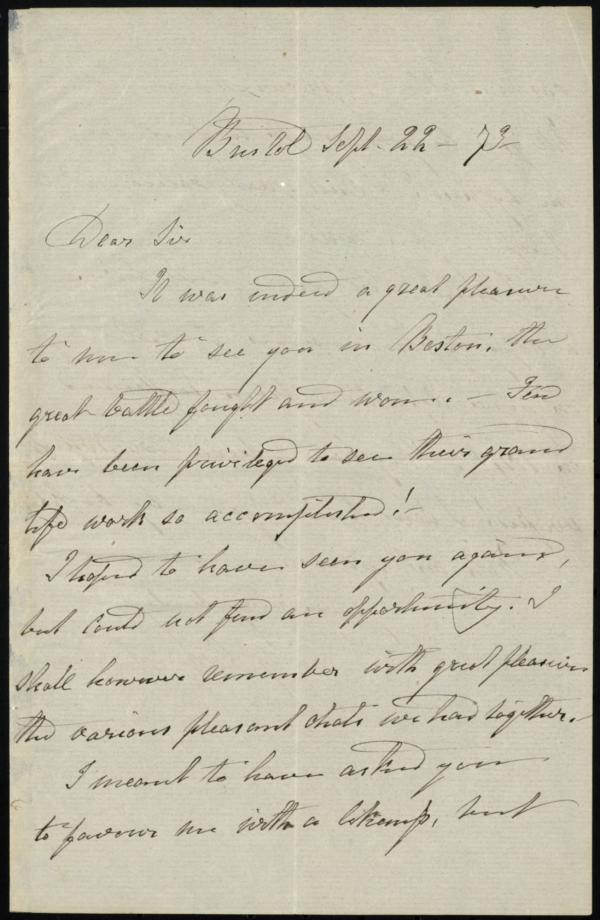 Bristol Sept. 22 - 73
Dear Sir
It was indeed a great pleasure
to me to see you in Boston, the
great battle fought and won. - Few
have been privileged to see their grand
life work so accomplished! -
I hoped to have seen you again,
but could not find an opportunity. I
shall however remember with great pleasure
the various pleasant chats we had together. -
I meant to have asked you
to favour me with a likeness, but